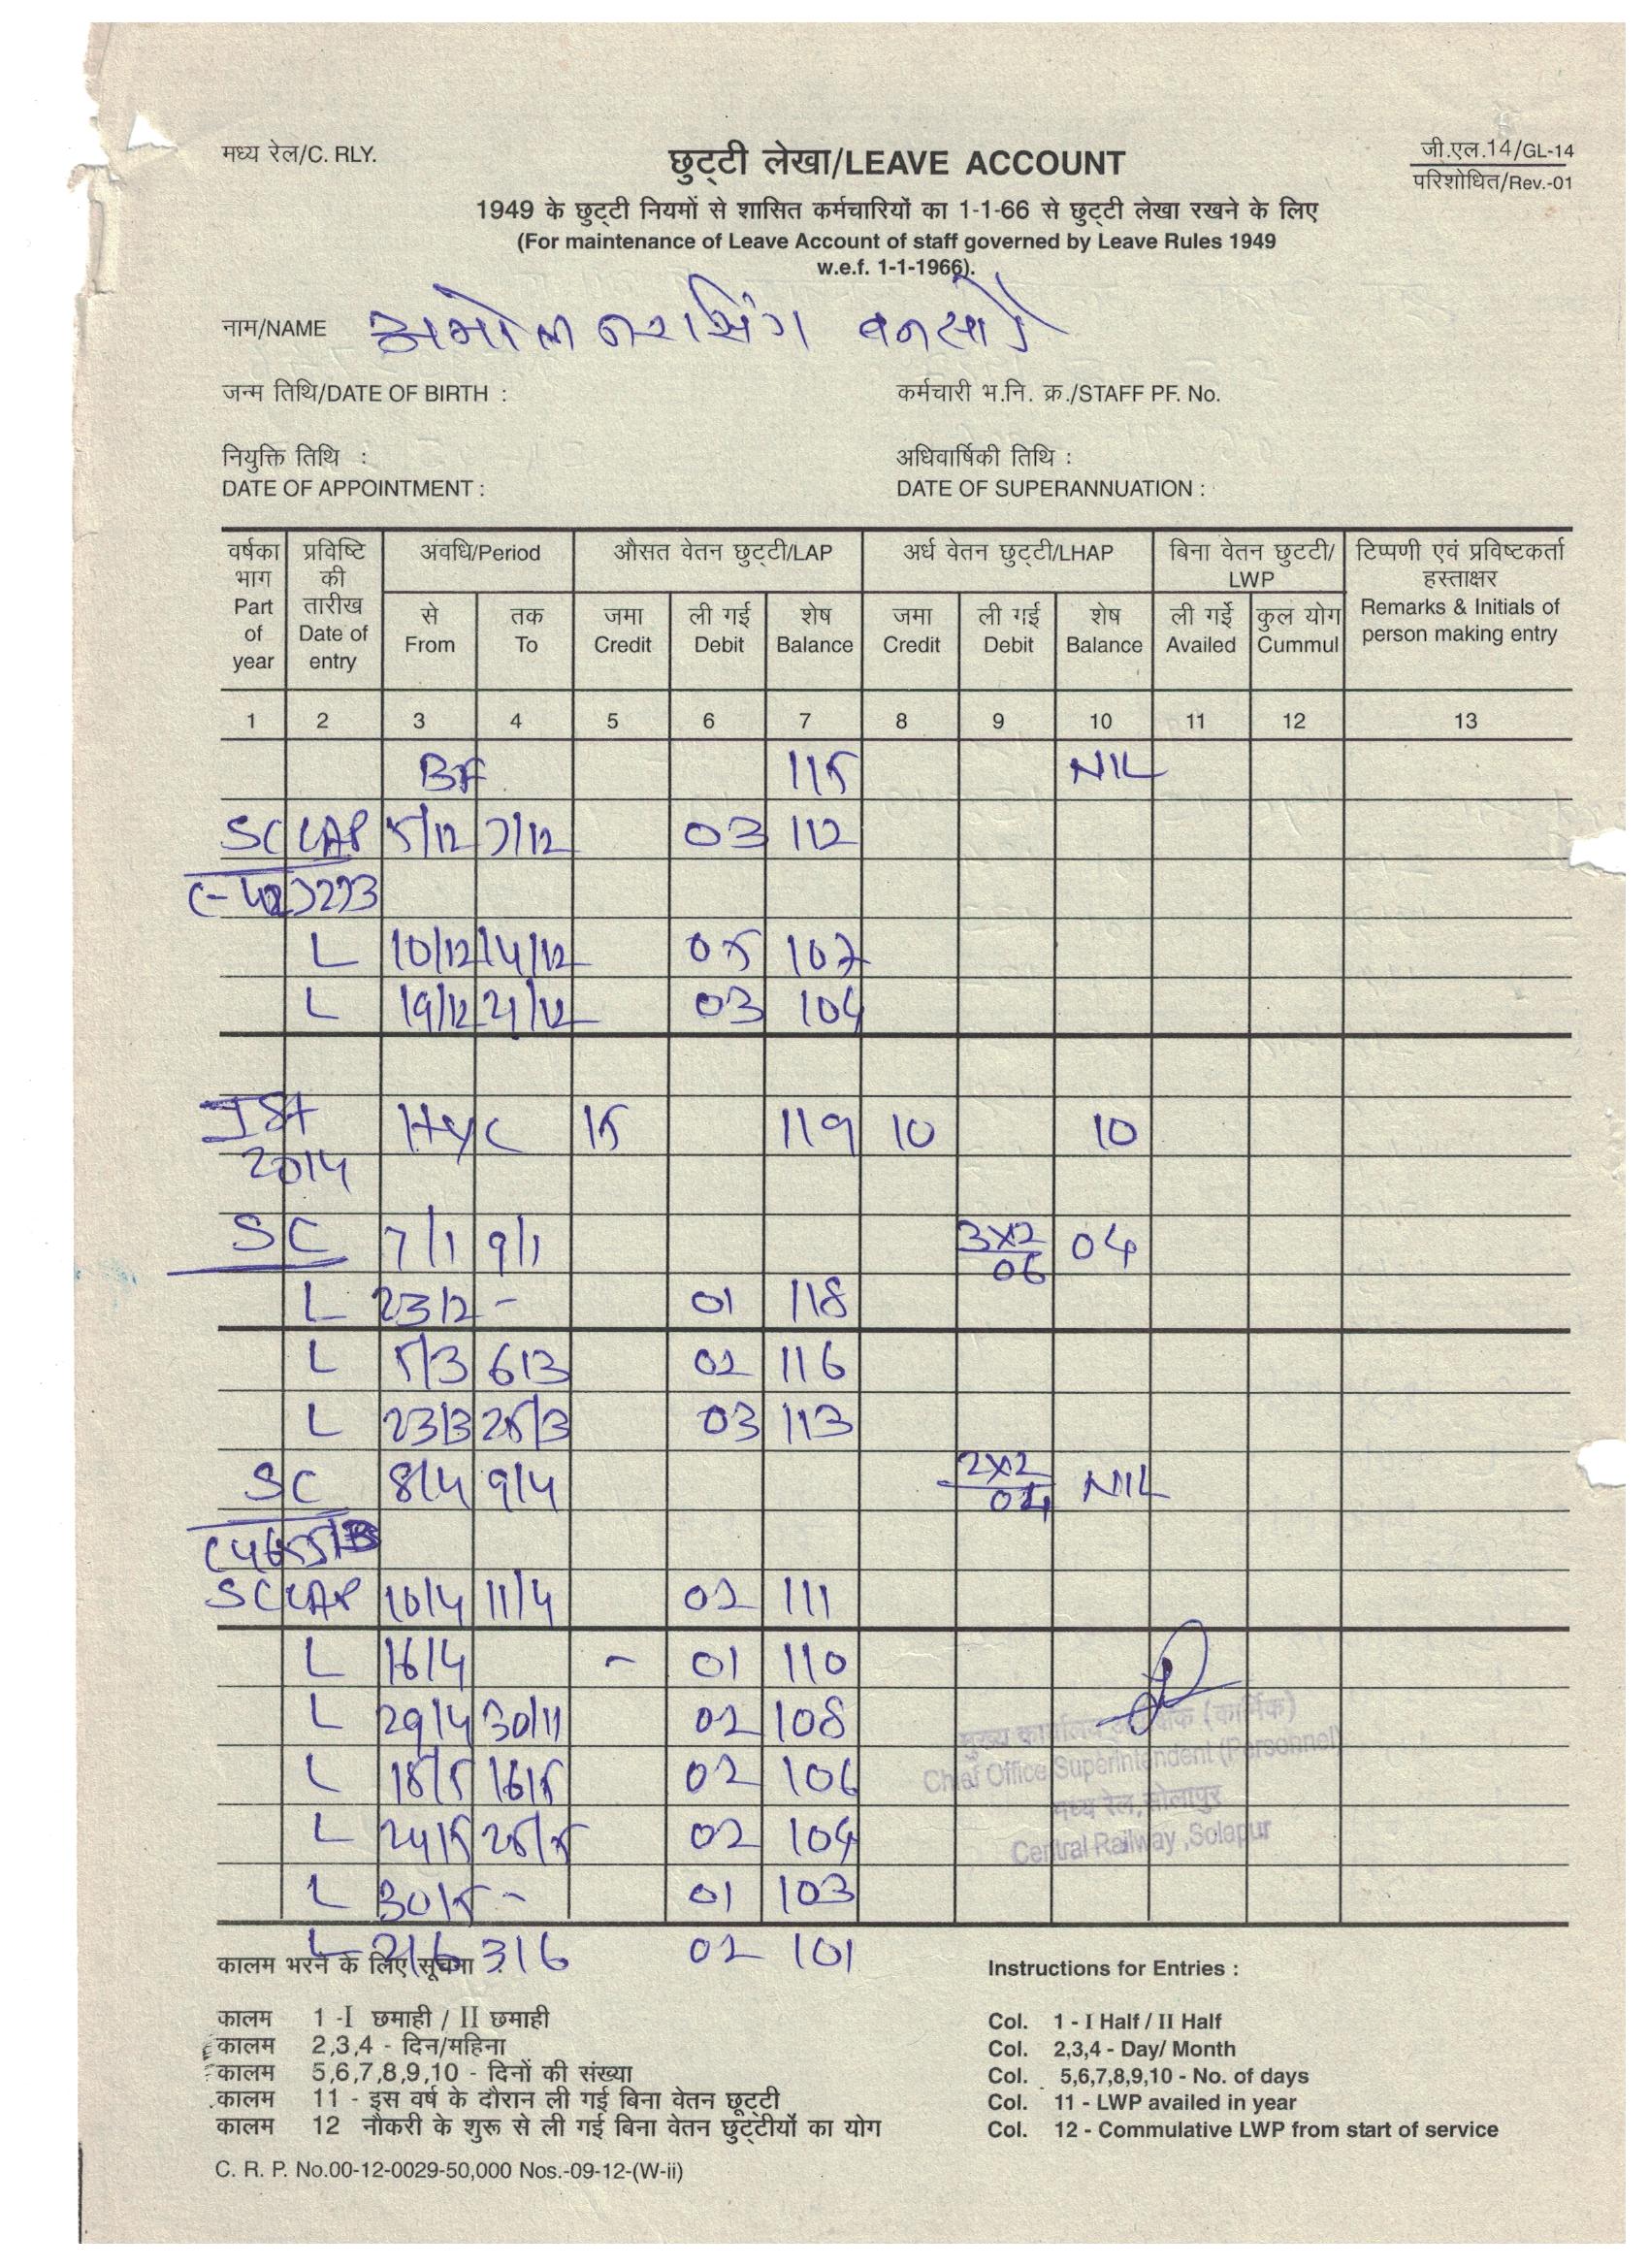 मध्य रेल/C. RLY.
छुट्टी लेखा/LEAVE ACCOUNT
जी.एल.14/GL-14
परिशोधित/Rev.-01
1949 के छुट्टी नियमों से शासित कर्मचारियों का 1-1-66 से छुट्टी लेखा रखने के लिए
(For maintenance of Leave Account of staff governed by Leave Rules 1949
w.e.f. 1-1-1966).
नाम/NAME अमोल नरसिंग बनसोडे
जन्म तिथि/DATE OF BIRTH :
कर्मचारी भ.नि. क्र./STAFF PF. No.
नियुक्ति तिथि :
DATE OF APPOINTMENT :
अधिवार्षिकी तिथि :
DATE OF SUPERANNUATION :
वर्षका भाग Part of year
प्रविष्टि की तारीख Date of entry
अवधि/Period
औसत वेतन छुट्टी/LAP
अर्ध वेतन छुट्टी/LHAP
बिना वेतन छुटटी/ LWP
टिप्पणी एवं प्रविष्टकर्ता हस्ताक्षर Remarks & Initials of person making entry
से From
तक To
जमा Credit
ली गई Debit
शेष Balance
जमा Credit
ली गई Debit
शेष Balance
ली गई Availed
कुल योग Cummul
1 2 3 4 5 6 7 8 9 10 11 12 13
BF 115 NIL
SC LAP 5/12 7/12 03 112
L 10/12 14/12 05 107
L 19/12 21/12 03 104
Ist 2014 H/Y C 15 119 10 10
SC 7/1 9/1 3x2 06 04
L 23/2 - 01 118
L 5/3 6/3 02 116
L 23/3 25/3 03 113
SC 8/4 9/4 2x2 04 NIL
SC LAP 10/4 11/4 02 111
L 16/4 - 01 110
L 29/4 30/11 02 108
L 15/5 16/5 02 106
L 24/5 25/5 02 104
L 30/5 - 01 103
L 2/6 3/6 02 101
मुख्य कार्यालय अधीक्षक (कार्मिक)
Chief Office Superintendent (Personnel)
मध्य रेल, सोलापुर
Central Railway, Solapur
कालम भरने के लिए सूचना :
कालम 1 -I छमाही / II छमाही
कालम 2,3,4 - दिन/महिना
कालम 5,6,7,8,9,10 - दिनों की संख्या
कालम 11 - इस वर्ष के दौरान ली गई बिना वेतन छूट्टी
कालम 12 नौकरी के शुरू से ली गई बिना वेतन छुट्टीयों का योग
Instructions for Entries :
Col. 1 - I Half / II Half
Col. 2,3,4 - Day/ Month
Col. 5,6,7,8,9,10 - No. of days
Col. 11 - LWP availed in year
Col. 12 - Commulative LWP from start of service
C. R. P. No.00-12-0029-50,000 Nos.-09-12-(W-ii)